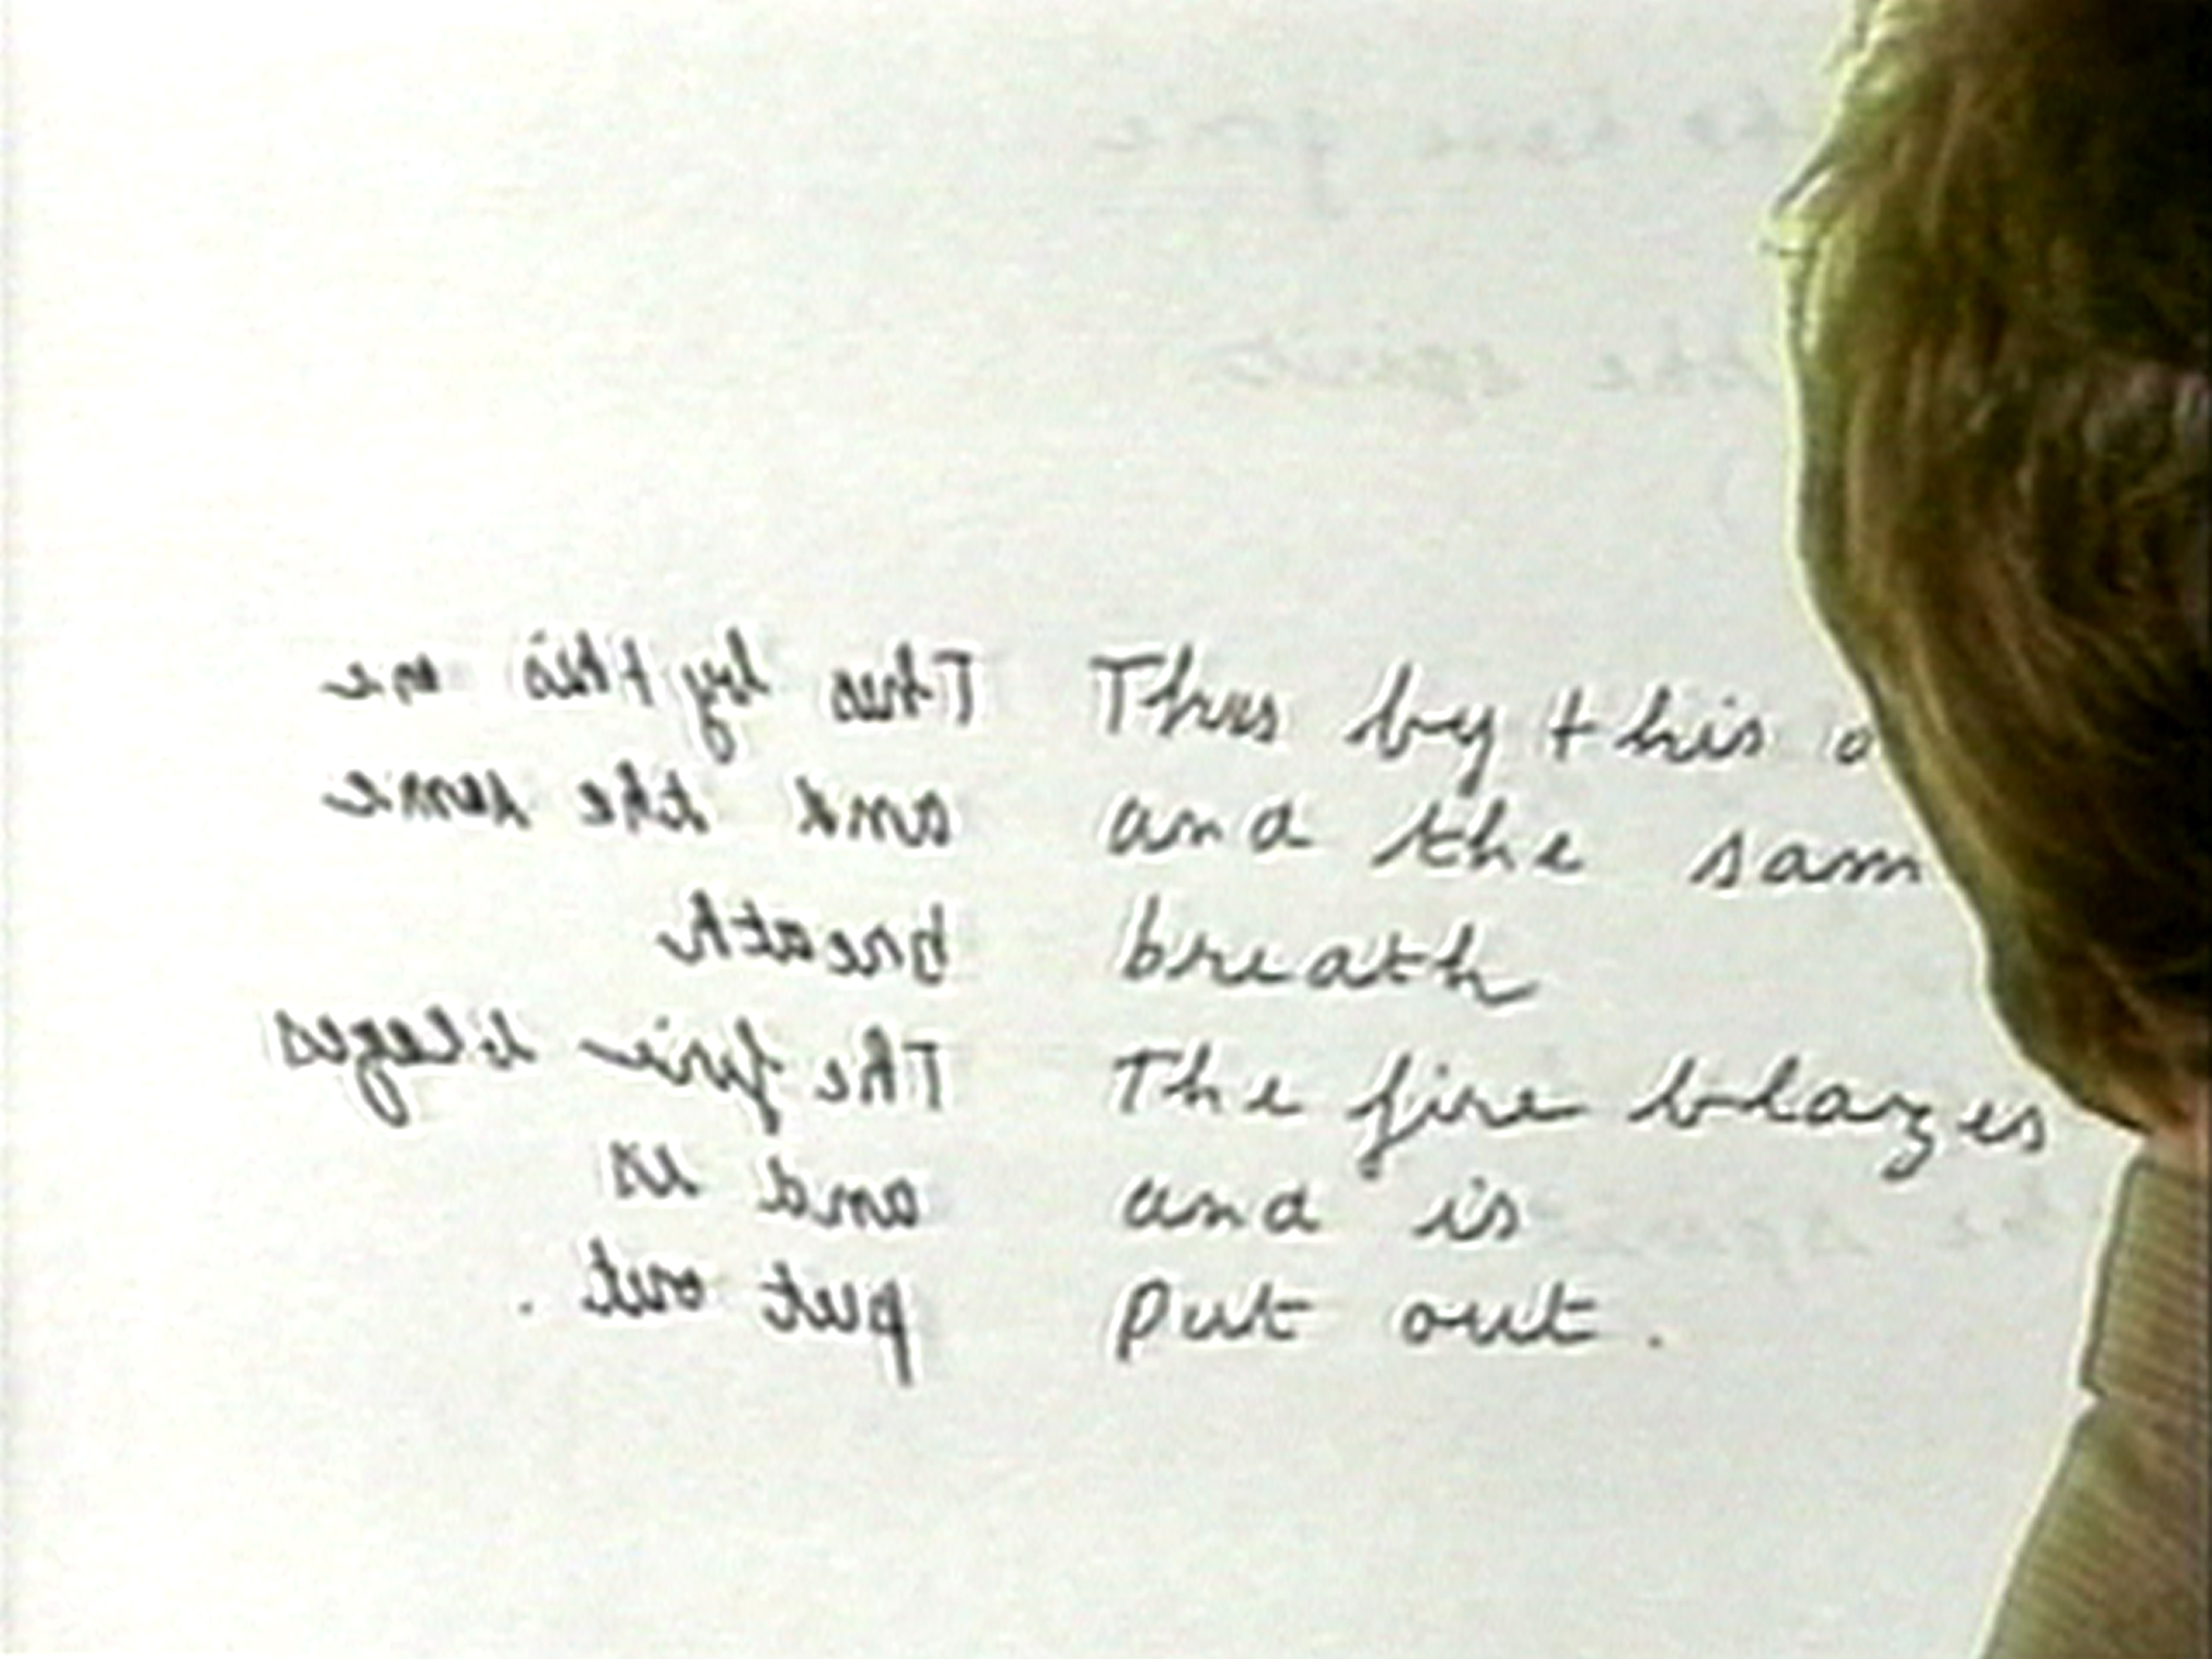 Thus by this one
and the same
breath
The fire blazes
and is
put out .
Thus by this o
and the sam
breath
The fire blazes
and is
put out .